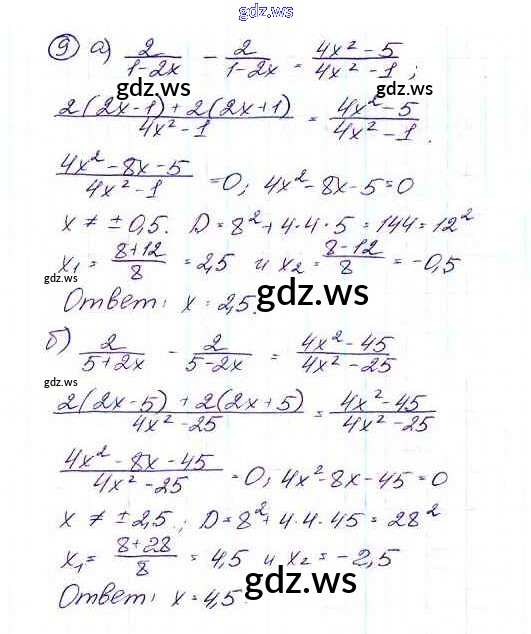 gdz.ws
9 а) 2/(1-2x) - 2/(1-2x) = (4x² - 5)/(4x² - 1);
gdz.ws gdz.ws
(2(2x-1) + 2(2x+1))/(4x² - 1) = (4x² - 5)/(4x² - 1).
gdz.ws gdz.ws
(4x² - 8x - 5)/(4x² - 1) = 0; 4x² - 8x - 5 = 0
x ≠ ± 0,5. D = 8² + 4·4·5 = 144 = 12²
x₁ = (8+12)/8 = 2,5 и x₂ = (8-12)/8 = -0,5
Ответ: x = 2,5.
gdz.ws
б) 2/(5+2x) - 2/(5-2x) = (4x² - 45)/(4x² - 25)
gdz.ws gdz.ws
(2(2x-5) + 2(2x+5))/(4x² - 25) = (4x² - 45)/(4x² - 25)
gdz.ws
(4x² - 8x - 45)/(4x² - 25) = 0; 4x² - 8x - 45 = 0
x ≠ ± 2,5.; D = 8² + 4·4·45 = 28²
x₁ = (8+28)/8 = 4,5 и x₂ = -2,5
gdz.ws
Ответ: x = 4,5.
gdz.ws